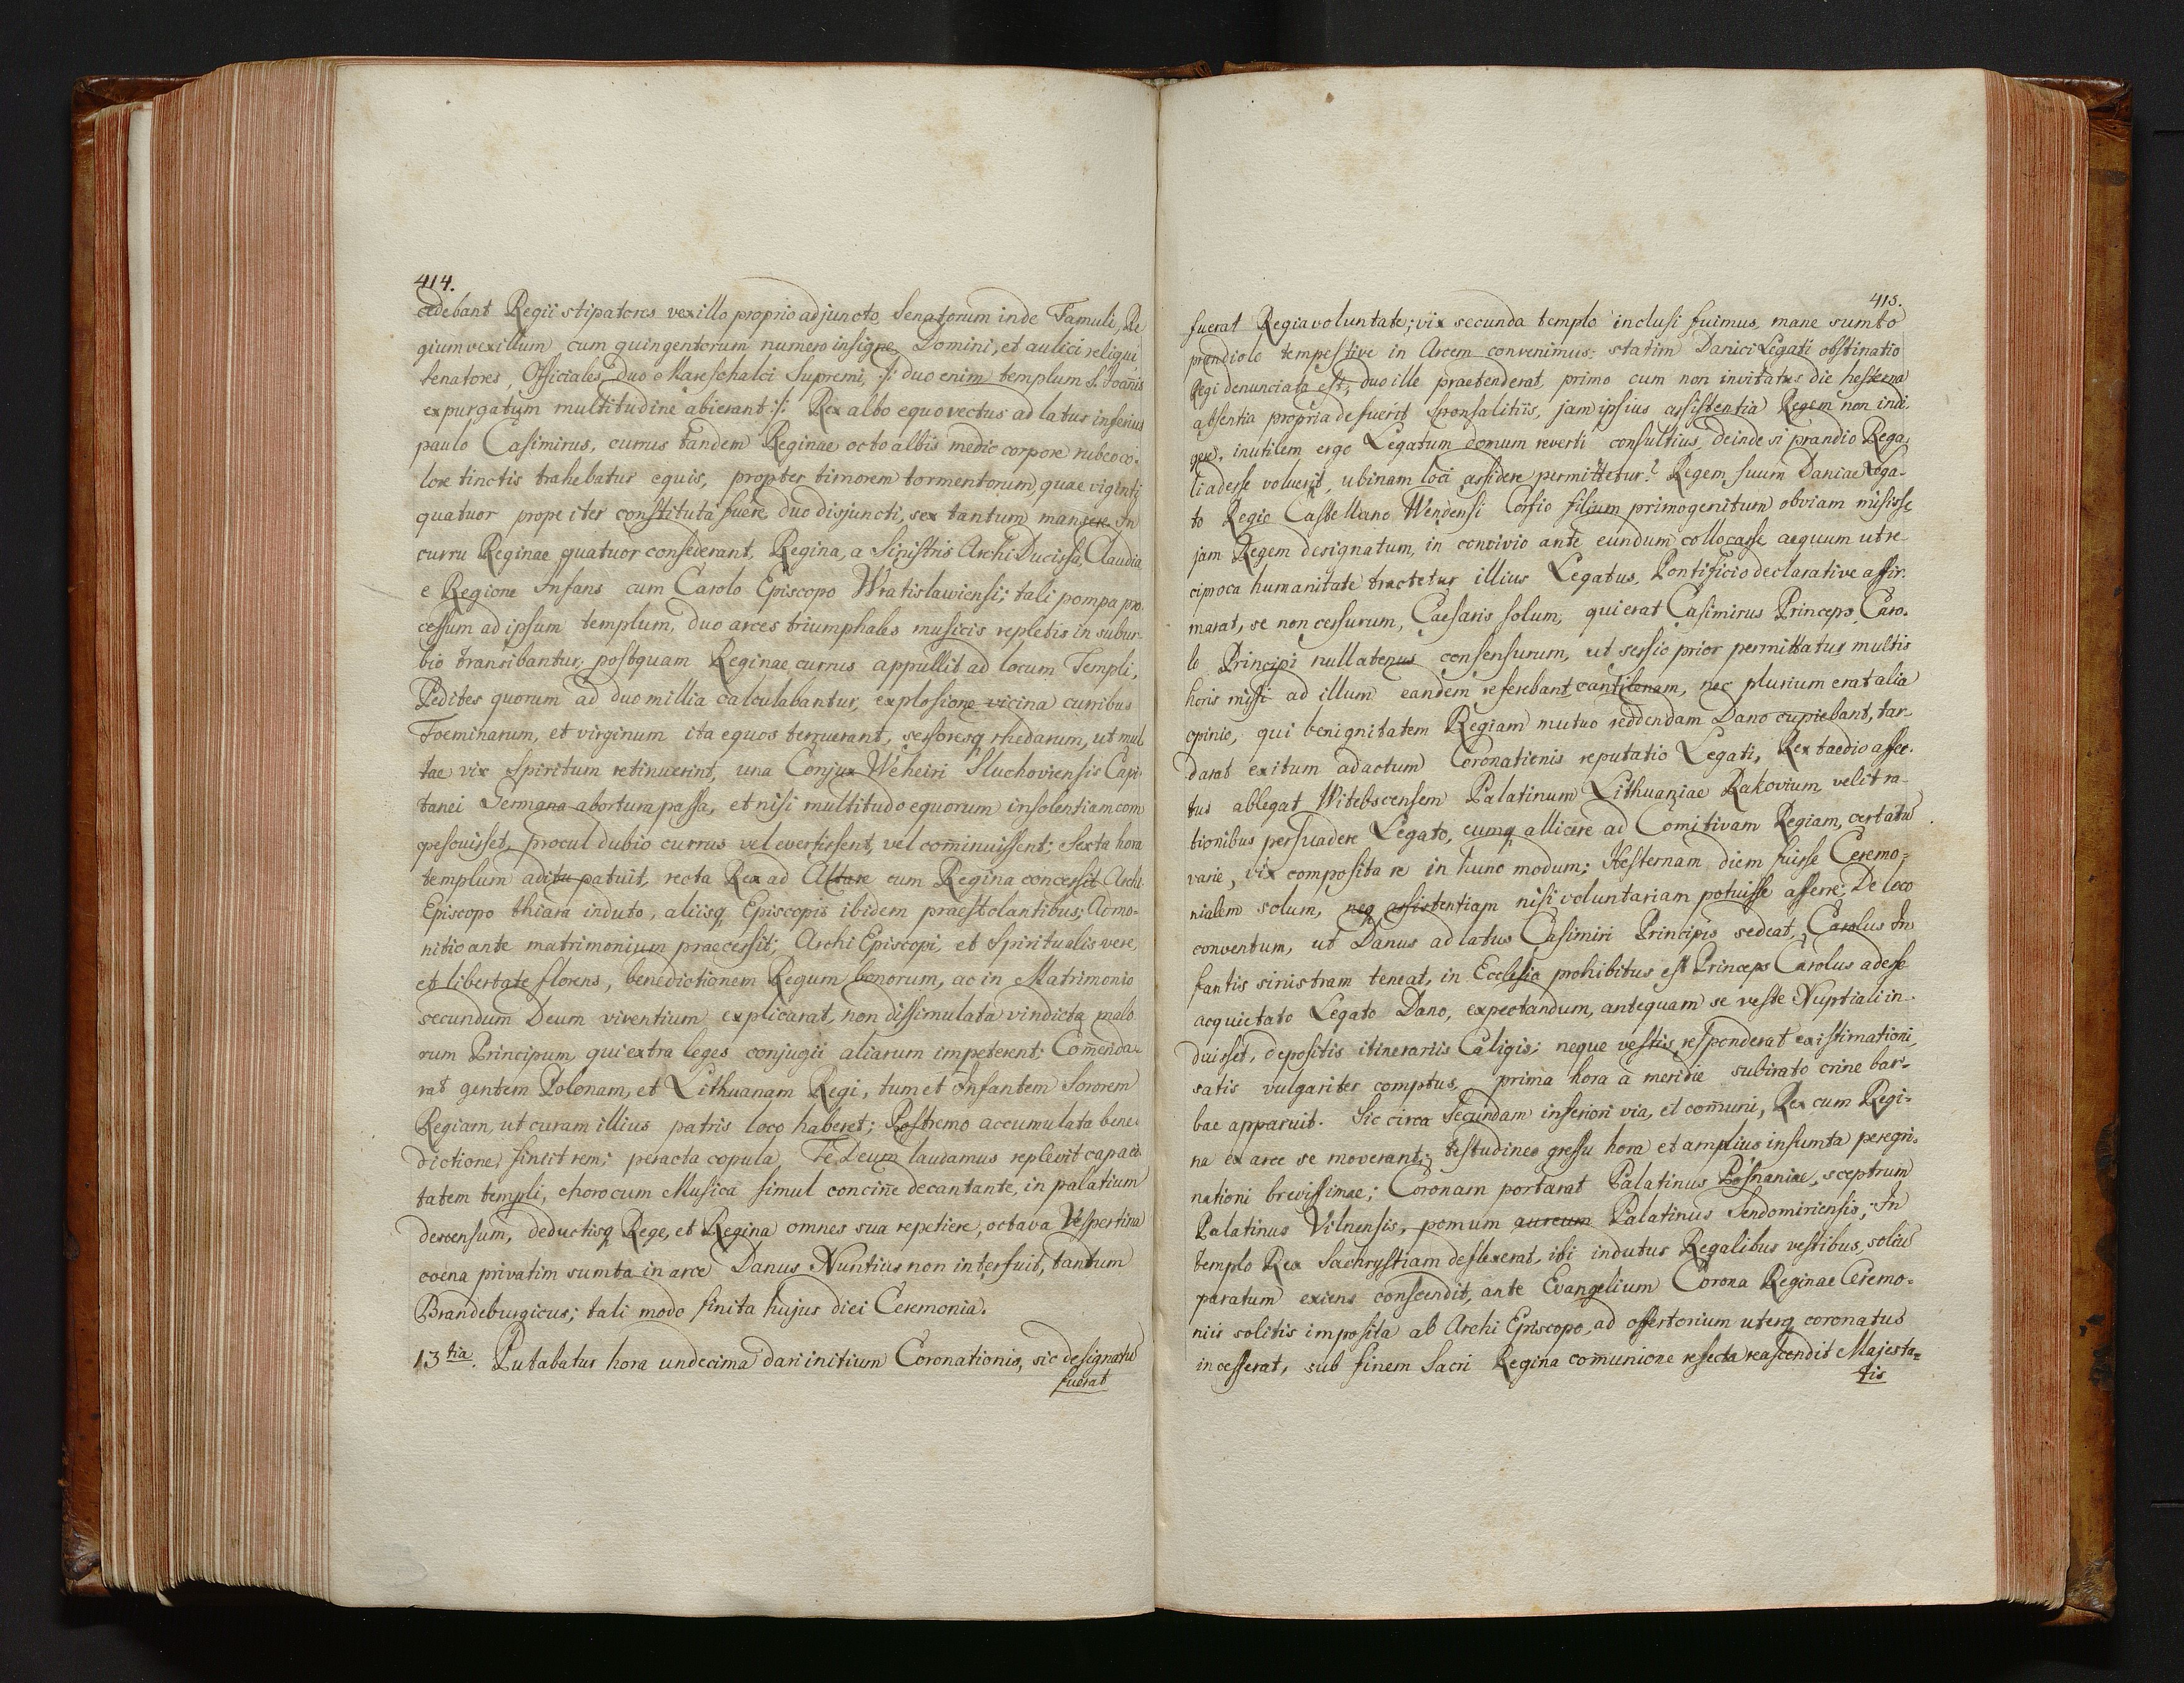 414.
cedebant Regii stipatores vexillo proprio adjuncto, Senatorum inde Famuli, Re
gium vexillum cum quingentorum numero insigne, Domini, et aulici reliqui
Senatores, Officiales, duo Mareschalci Supremi, :/: duo enim templum S. Joañis
expurgatum multitudine abierant :/: Rex albo equo vectus ad latus inferius
paulo Casimirus, currus tandem Reginae octo albis medio corpore rubeo co-
lore tinctis trahebatur equis, propter timorem tormentorum, quae viginti
quatuor prope iter constituta fuere, duo disjuncti, sex tantum mansere. In
curru Reginae quatuor consederant, Regina, a Sinistris Archi Ducissa, Claudia
e Regione Infans cum Carolo Episcopo Wratislawiensi; tali pompa pro-
cessum ad ipsum templum, duo arces triumphales musicis repletis in subur-
bio transibantur, postquam Reginae currus appullit ad locum Templi,
Pedites quorum ad duo millia calculabantur, explosione vicina curribus
Foeminarum, et virginum ita equos terruerant, sessoresq rhedarum, ut mul
tae vix Spiritum retinuerint, una Conjux Weheiri Sluchoviensis Capi-
tanei Germana abortum passa, et nisi multitudo equorum insolentiam com
pescuisset, procul dubio currus vel eversissent, vel com̄inuissent; Sexta hora
templum aditu patuit, recta Rex ad Altare cum Regina concessit Archi
Episcopo thiara induto, aliisq Episcopis ibidem praestolantibus; Admo-
nitio ante matrimonium praecessit; Archi Episcopi, et Spiritualis vere,
et libertate florens, benedictionem Regum bonorum, ac in Matrimonio
secundum Deum viventium explicarat, non dissimulata vindicta malo
rum Principum, qui extra leges conjugii aliarum impeterent; Com̄enda-
rat gentem Polonam, et Lithuanam Regi, tum et Infantem Sororem
Regiam, ut curam illius patris loco haberet; Postremo accumulata bene-
dictione, finiit rem; peracta copula Te Deum laudamus replevit capaci
tatem templi, choro cum Musica simul conciñe decantante, in palatium
descensum, deductisq Rege, et Regina omnes sua repetiere, octava Vespertina
coena privatim sumta in arce Danus Nuntius non interfuit, tantum
Brandeburgicus; tali modo finita hujus diei Ceremonia.
13tia. Putabatur hora undecima dari initium Coronationis, sic designatū
fuerat
415.
fuerat Regia voluntate; vix secunda templo inclusi fuimus, mane sumto
prandiolo tempestive in Arcem convenimus; statim Danici Legati obstinatio
Regi denunciata est, duo ille praetenderat, primo cum non invitatus die hesterna
absentia propria defuerit Sponsalitiis, jam ipsius assistentia Regem non indi-
gere, inutilem ergo Legatum domum reverti consultius, deinde si prandio Rega-
li adesse voluerit, ubinam loci assidere permittetur? Regem suum Daniae Lega-
to Regio Castellano Wendensi Corsio filium primogenitum obviam misisse
jam Regem designatum, in convivio ante eundum collocasse aequum ut re
ciproca humanitate tractetur illius Legatus, Pontificio declarative affir-
marat, se non cessurum, Caesaris solum, qui erat Casimirus Princeps, Caro-
lo Principi nullatenus consensurum, ut sessio prior permittatur, multis
horis missi ad illum eandem referebant cantilenam, nec plurium erat alia
opinio, qui benignitatem Regiam mutuo reddendam Dano cupiebant, tar-
darat exitum ad actum Coronationis reputatio Legati, Rex taedio affec-
tus ablegat Witebscensem Palatinum Lithuaniae Rakovium, velit ra-
tionibus persuadere Legato, eumq allicere ad Comitivam Regiam, certatū
varie, vix composita re in hunc modum; Hesternam diem fuisse Ceremo-
nialem solum, neq assistentiam nisi voluntariam potuisse afferre; De loco
conventum, ut Danus ad latus Casimiri Principis sedeat, Carolus In
fantis sinistram teneat, in Ecclesia prohibitus est Princeps Carolus adesse
acquietato Legato Dano, expectandum, antequam se veste Nuptiali in-
duisset, depositis itinerariis Caligis; neque vestis responderat existimationi,
satis vulgariter comptus, prima hora a meridie subirato crine bar-
bae apparuit. Sic circa Secundam inferiori via, et com̄uni, Rex cum Regi-
na ex arce se moverant; testudineo gressu hora et amplius insumta peregri-
nationi brevissimae; Coronam portarat Palatinus Posnaniae, sceptrum
Palatinus Vilnensis, pomum aureum Palatinus Sendomiriensis; In
templo Rex Sachrystiam deflexerat, ibi indutus Regalibus vestibus, soliū
paratum exiens conscendit, ante Evangelium Corona Reginae Ceremo-
niis solitis imposita ab Archi Episcopo, ad offertorium uterq coronatus
incesserat, sub finem Sacri Regina com̄unione refecta reascendit Majesta=
tis